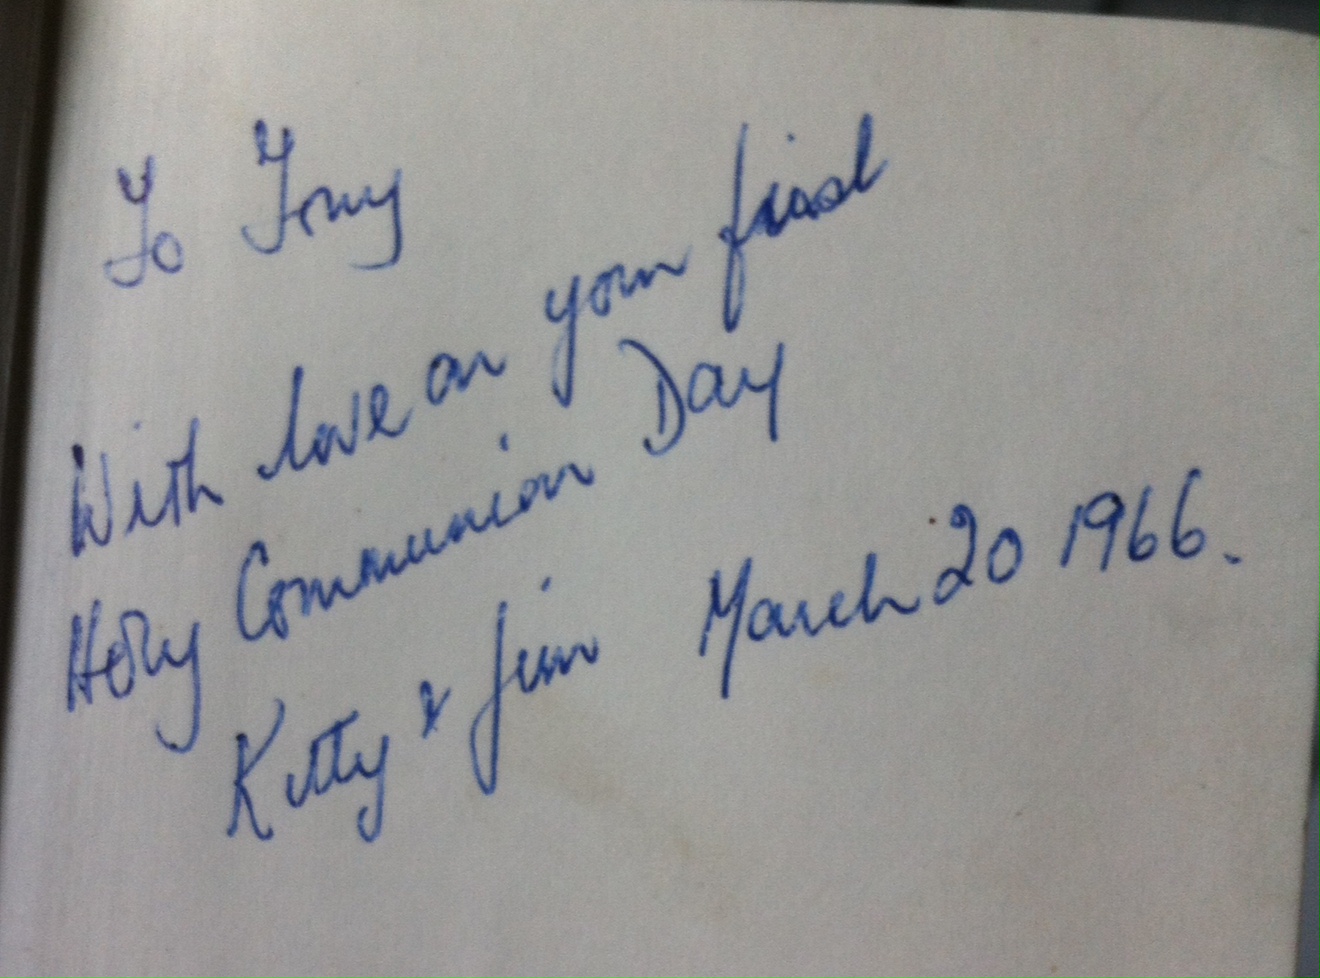 To Tony
With love on your first
Holy Communion Day
Kitty & Jim March 20 1966.